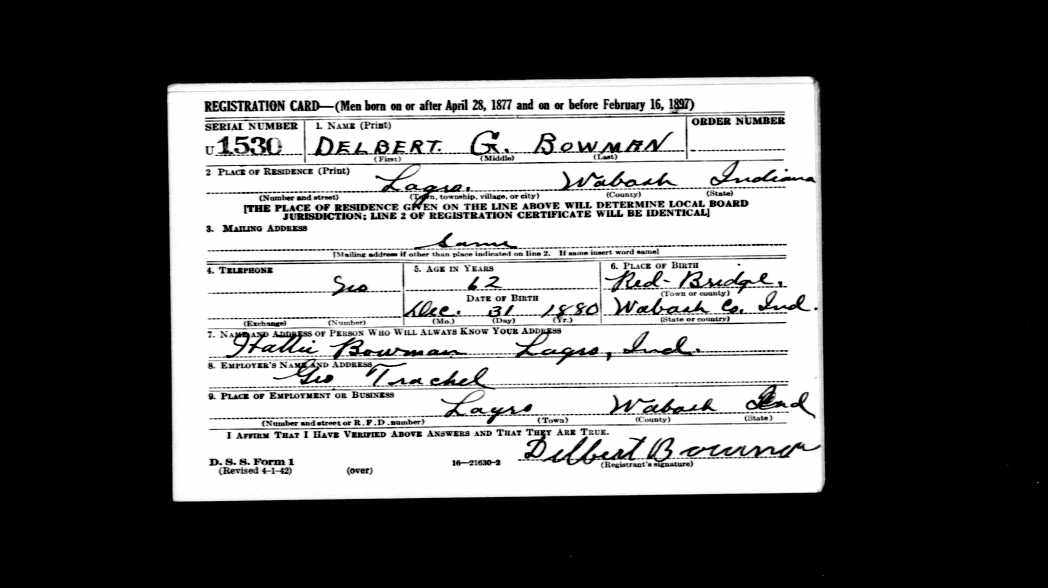 REGISTRATION CARD—(Men born on or after April 28, 1877 and on or before February 16, 1897)
SERIAL NUMBER 1. NAME (Print) ORDER NUMBER
U 1530 DELBERT. G. BOWMAN
(First) (Middle) (Last)
2 PLACE OF RESIDENCE (Print)
Lagro. Wabash Indiana
(Number and street) (Town, township, village, or city) (County) (State)
[THE PLACE OF RESIDENCE GIVEN ON THE LINE ABOVE WILL DETERMINE LOCAL BOARD
JURISDICTION; LINE 2 OF REGISTRATION CERTIFICATE WILL BE IDENTICAL]
3. MAILING ADDRESS
Same
[Mailing address if other than place indicated on line 2. If same insert word same]
4. TELEPHONE 5. AGE IN YEARS 6. PLACE OF BIRTH
62 Red-Bridge,
DATE OF BIRTH (Town or county)
Dec. 31 1880 Wabash Co. Ind.
(Exchange) (Number) (Mo.) (Day) (Yr.) (State or country)
7. NAME AND ADDRESS OF PERSON WHO WILL ALWAYS KNOW YOUR ADDRESS
Hattie Bowman Lagro, Ind.
8. EMPLOYER'S NAME AND ADDRESS
Geo Trachel
9. PLACE OF EMPLOYMENT OR BUSINESS
Lagro Wabash Ind
(Number and street or R. F. D. number) (Town) (County) (State)
I AFFIRM THAT I HAVE VERIFIED ABOVE ANSWERS AND THAT THEY ARE TRUE.
Delbert Bowman
D. S. S. Form 1 16—21630-2 (Registrant's signature)
(Revised 4-1-42) (over)